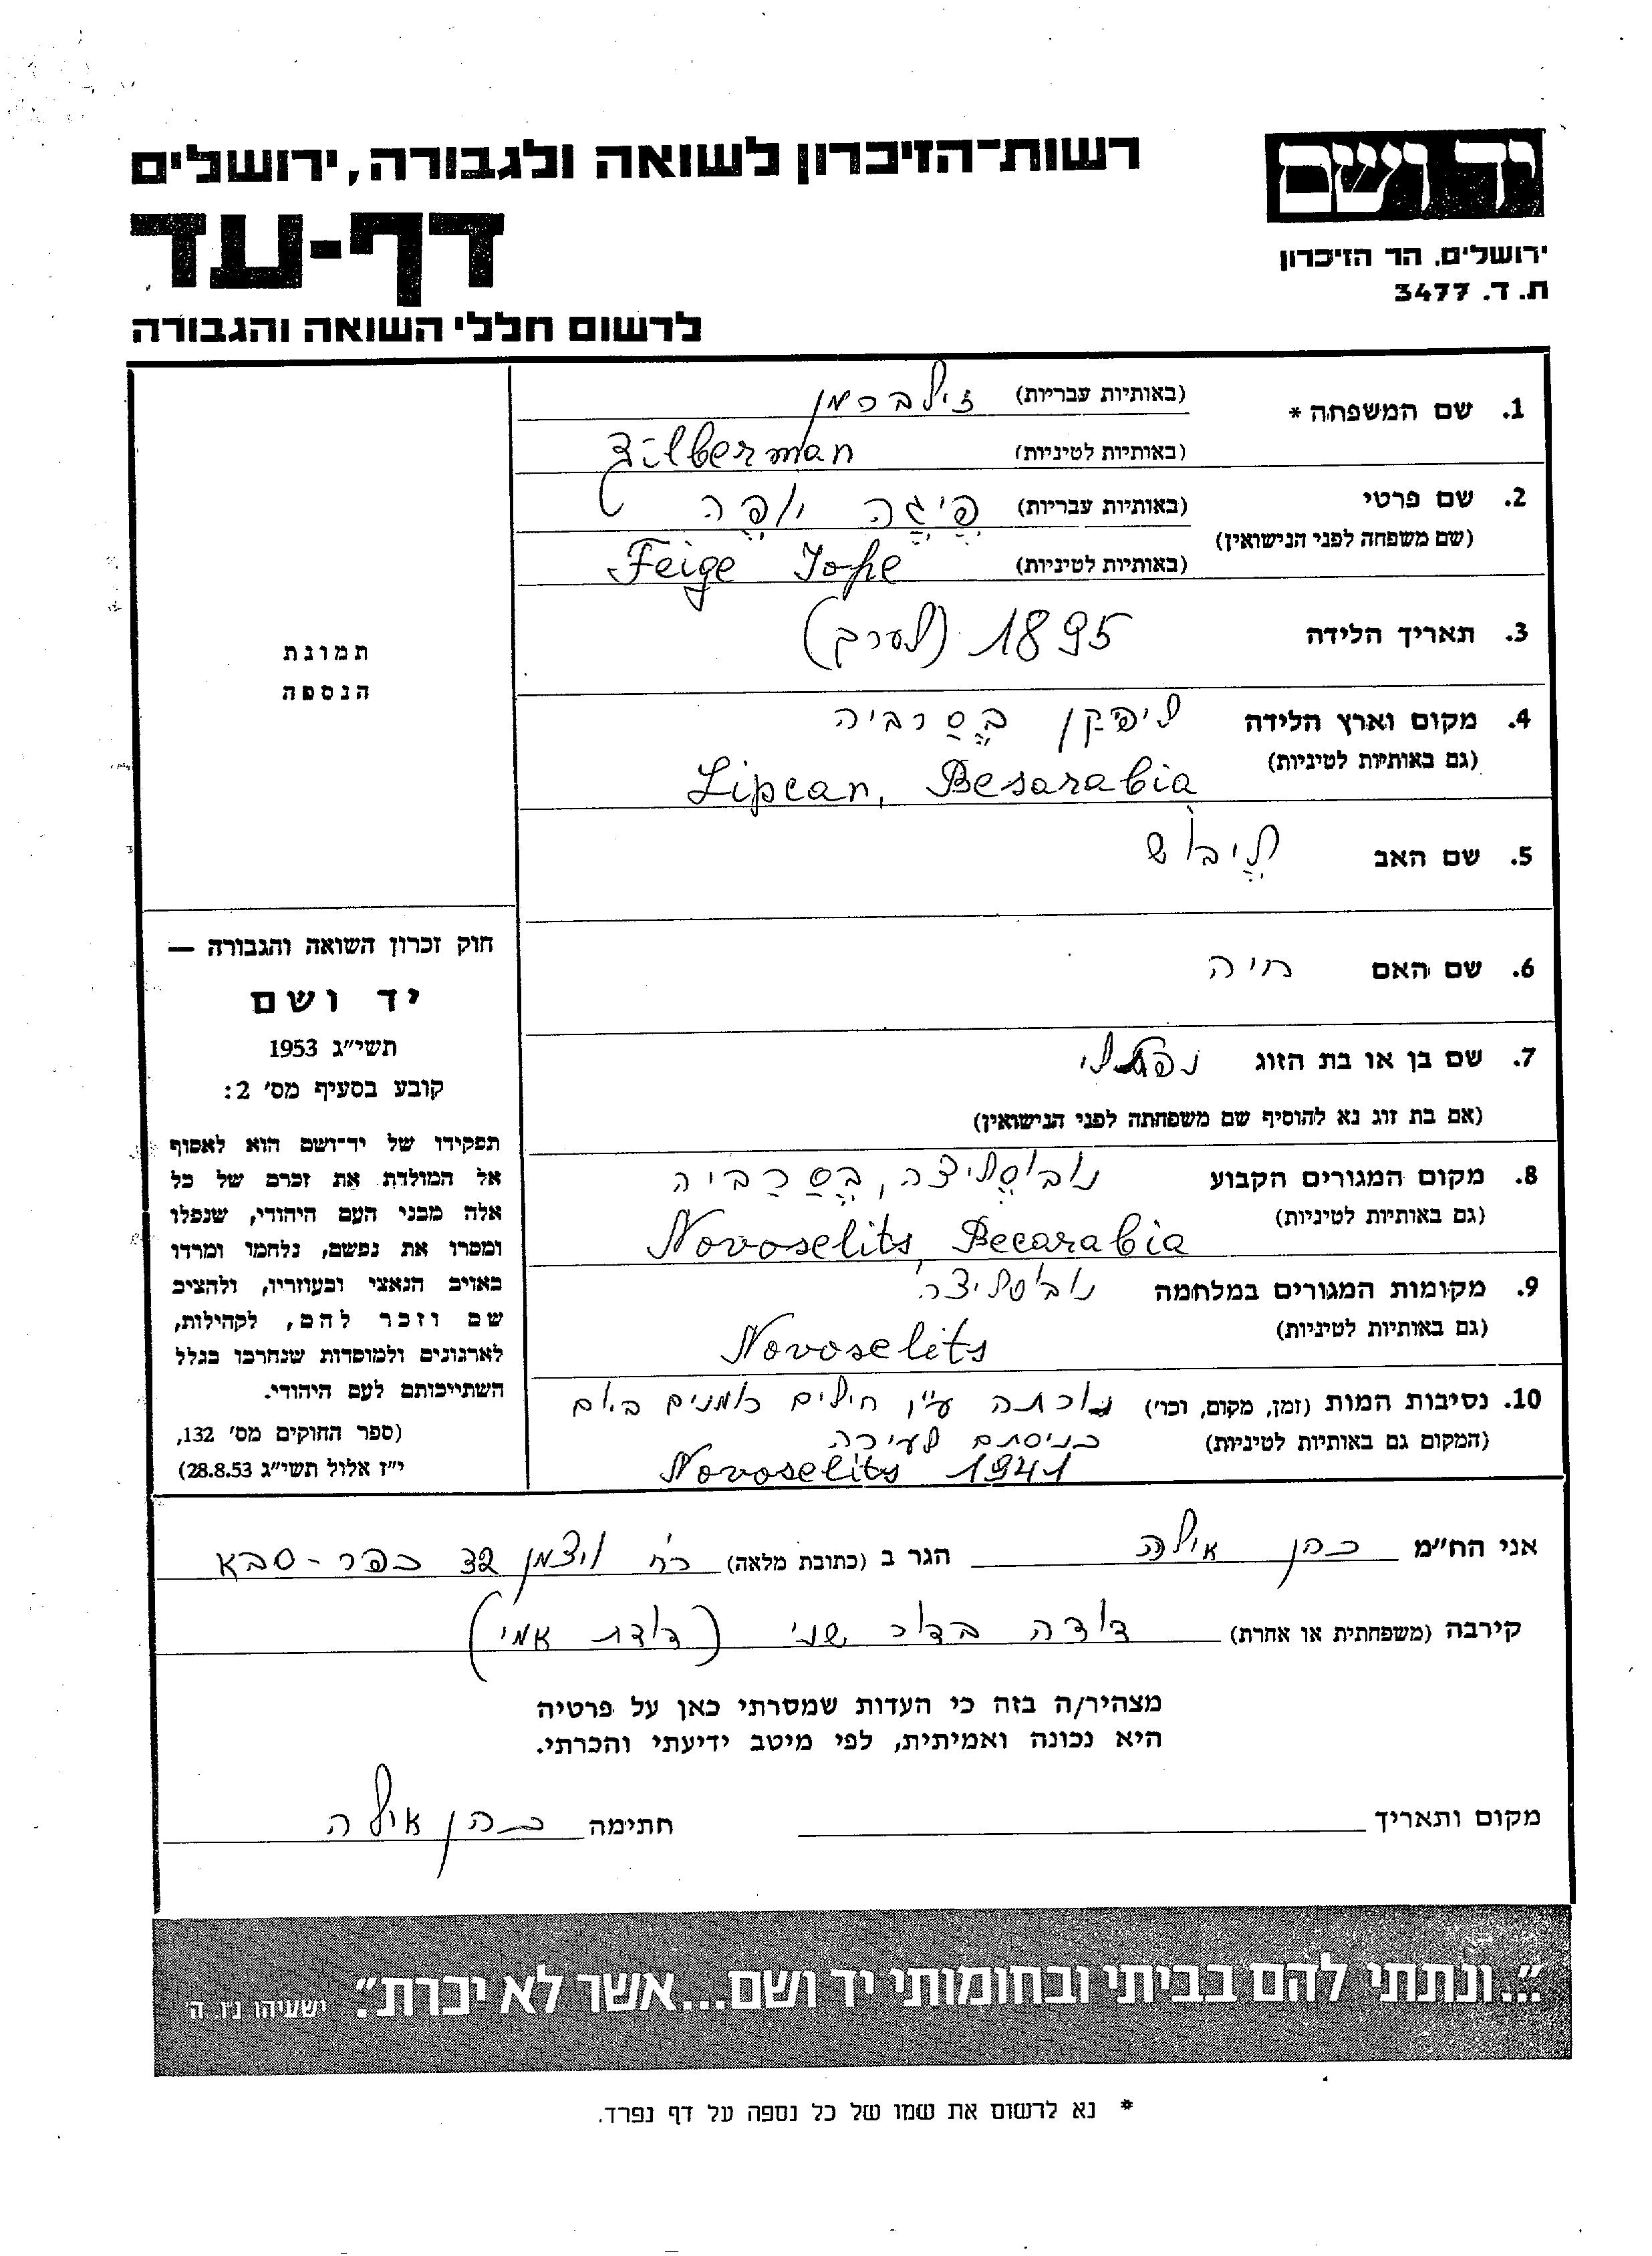 יד ושם
ירושלים, הר הזיכרון
ת. ד. 3477
רשות-הזיכרון לשואה ולגבורה, ירושלים
דף-עד
לרשום חללי השואה והגבורה
1. שם המשפחה * (באותיות עבריות) זילברמן
(באותיות לטיניות) Zilberman
2. שם פרטי (באותיות עבריות) פֵיגֶה יופֶה
(שם משפחה לפני הנישואין)
(באותיות לטיניות) Feige Iope
3. תאריך הלידה 1895 (לערך)
4. מקום וארץ הלידה ליפקן בֶּסַרביה
(גם באותיות לטיניות) Lipcan, Besarabia
5. שם האב לֵיבוש
6. שם האם חיה
7. שם בן או בת הזוג נפתלי
(אם בת זוג נא להוסיף שם משפחתה לפני הנישואין)
8. מקום המגורים הקבוע נובוסֶליצה, בֶּסַרַביה
(גם באותיות לטיניות) Novoselits Becarabia
9. מקומות המגורים במלחמה נובוסליצה
(גם באותיות לטיניות) Novoselits
10. נסיבות המות (זמן, מקום, וכו') נורתה ע"י חילים רומנים ביום
(המקום גם באותיות לטיניות) כניסתם לעירה
Novoselits 1941
תמונת
הנספה
חוק זכרון השואה והגבורה —
יד ושם
תשי"ג 1953
קובע בסעיף מס' 2:
תפקידו של יד-ושם הוא לאסוף
אל המולדת את זכרם של כל
אלה מבני העם היהודי, שנפלו
ומסרו את נפשם, נלחמו ומרדו
באויב הנאצי ובעוזריו, ולהציב
שם וזכר להם, לקהילות,
לארגונים ולמוסדות שנחרבו בגלל
השתייכותם לעם היהודי.
(ספר החוקים מס' 132,
י"ז אלול תשי"ג 28.8.53)
אני הח"מ כהן אילה הגר ב (כתובת מלאה) רח' ויצמן 32 כפר-סבא
קירבה (משפחתית או אחרת) דודה בדור שני (דודת אמי)
מצהיר/ה בזה כי העדות שמסרתי כאן על פרטיה
היא נכונה ואמיתית, לפי מיטב ידיעתי והכרתי.
מקום ותאריך חתימה כהן אילה
"...ונתתי להם בביתי ובחומותי יד ושם...אשר לא יכרת". ישעיהו נ"ו. ה'
* נא לרשום את שמו של כל נספה על דף נפרד.